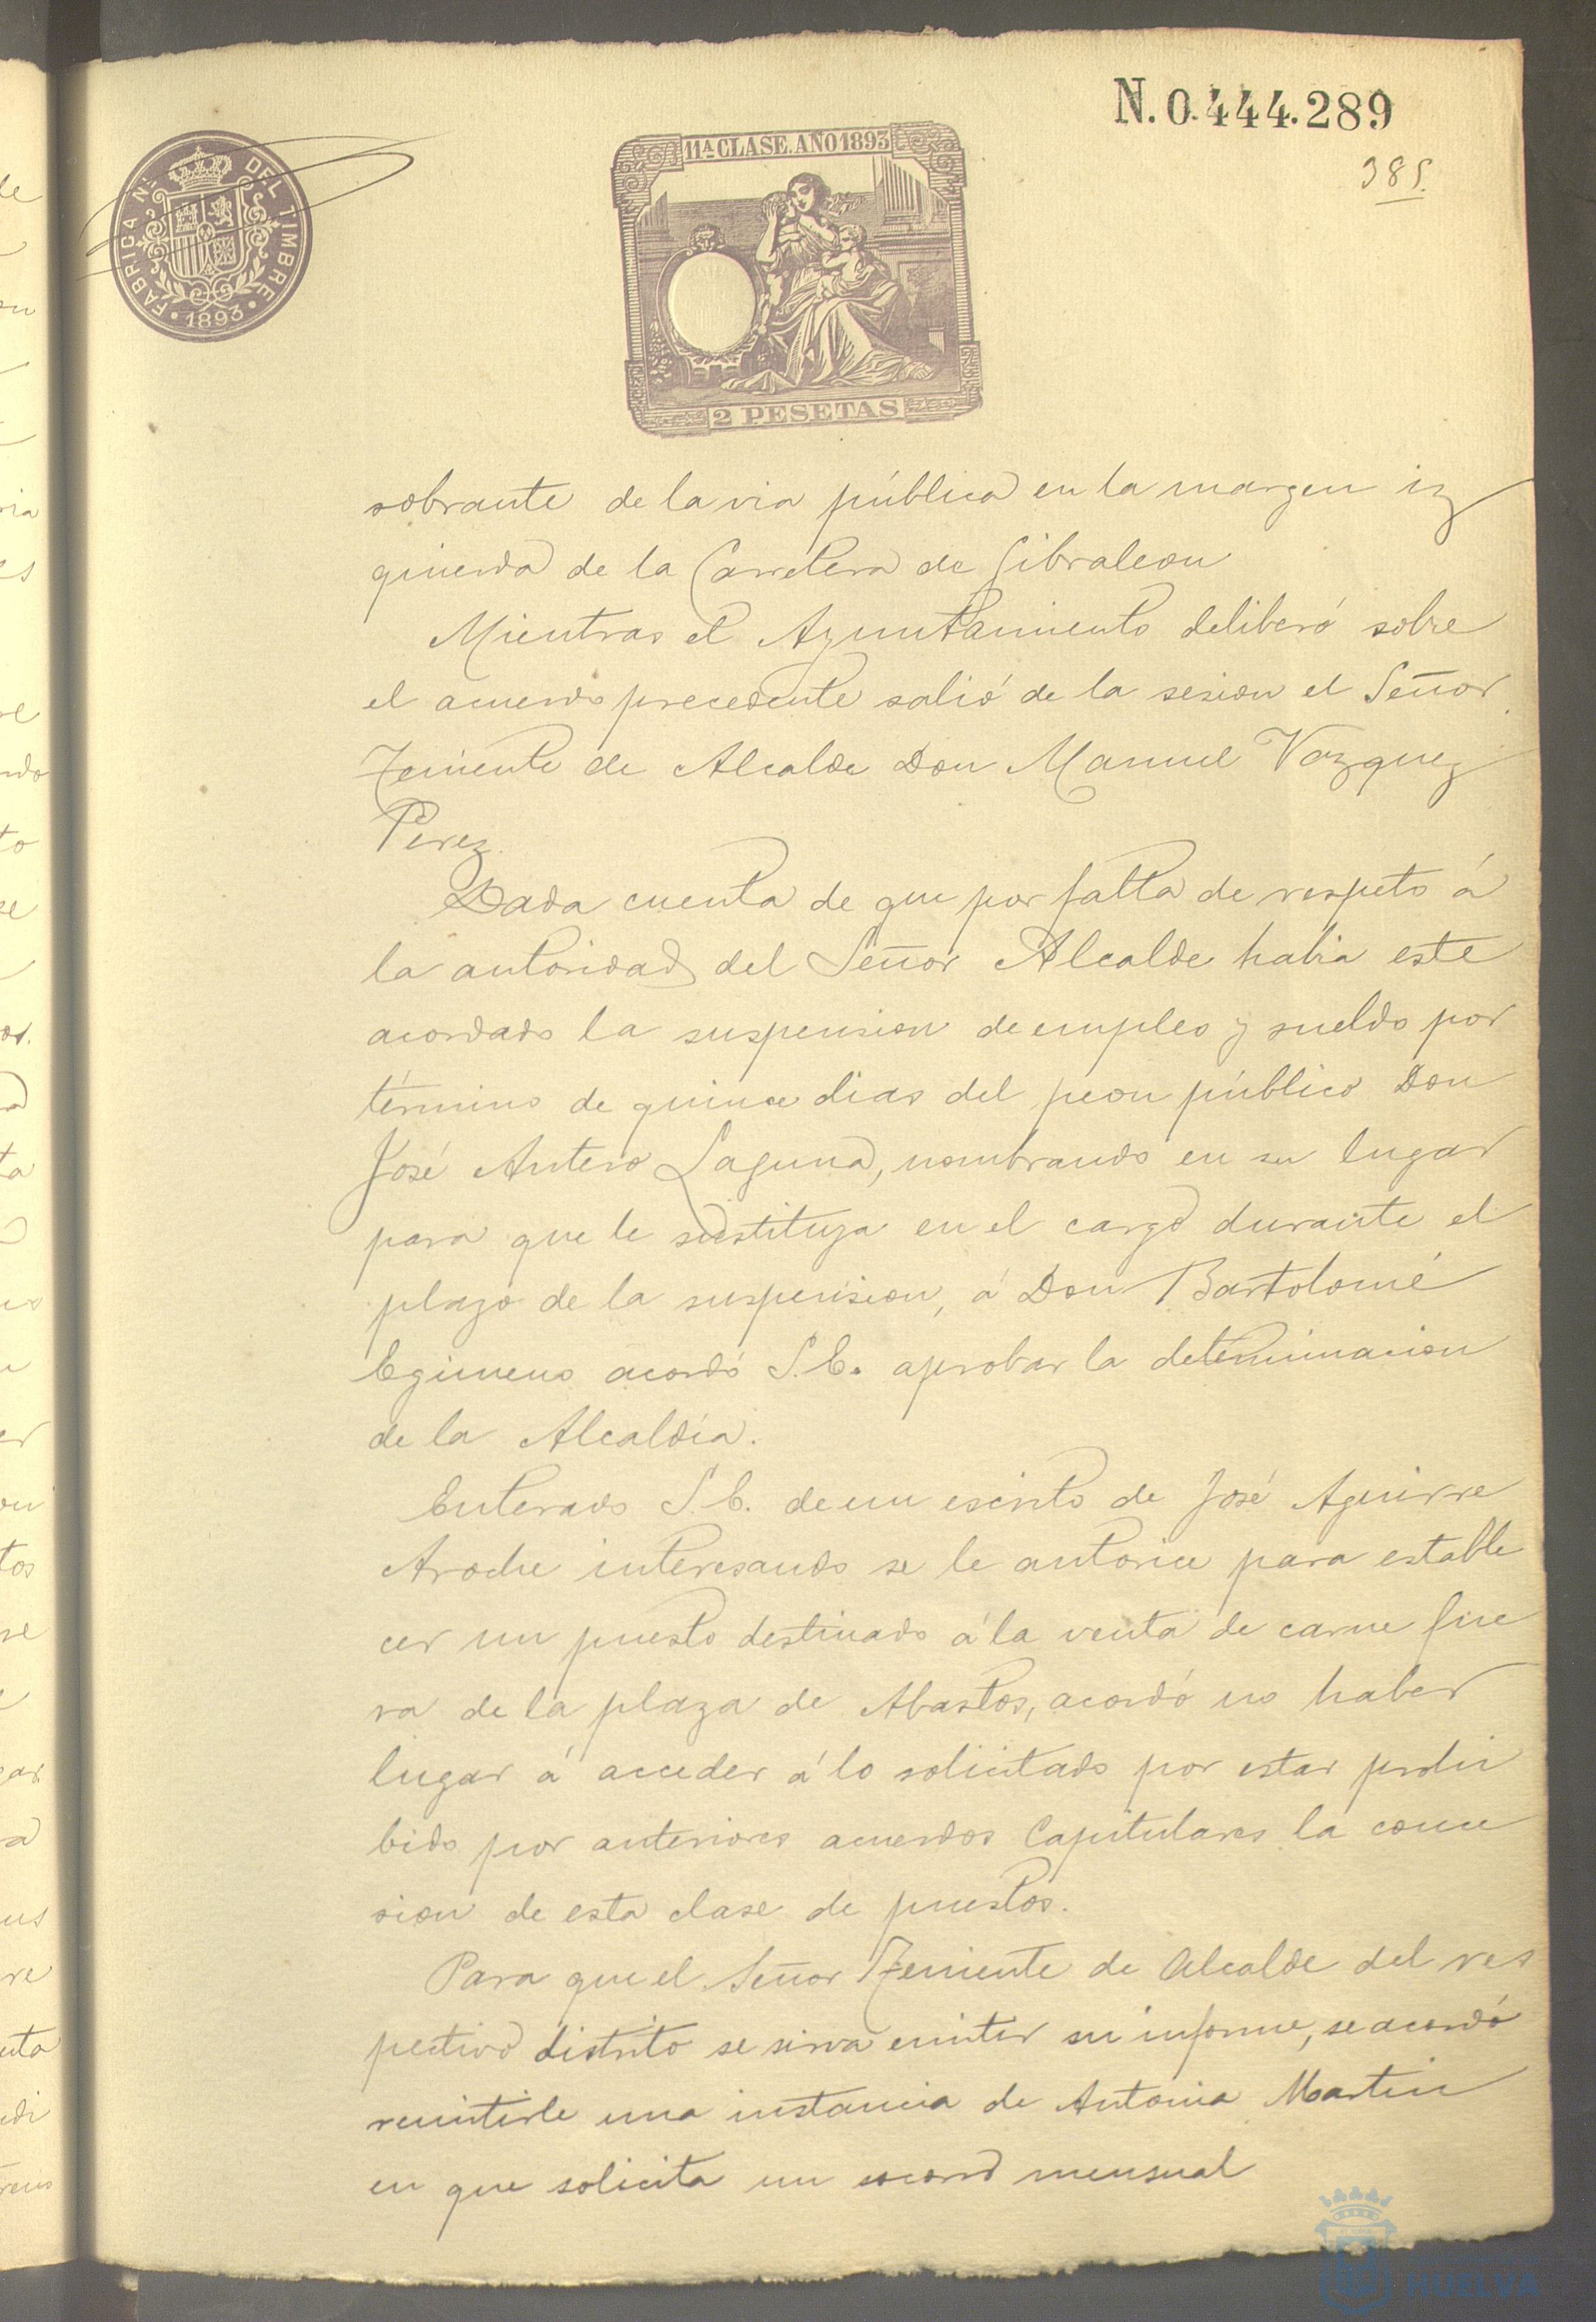 N.0.444.289
385.
FABRICA NL. DEL TIMBRE
1893
11ª CLASE. AÑO 1893
2 PESETAS
sobrante de la via pública en la margen iz
quierda de la Carretera de Gibraleon
Mientras el Ayuntamiento deliberó sobre
el acuerdo precedente salió de la sesion el Señor
Teniente de Alcalde Don Manuel Vazquez
Perez.
Dada cuenta de que por falta de respeto á
la autoridad del Señor Alcalde habia este
acordado la suspension de empleo y sueldo por
término de quince dias del peon público Don
José Antero Laguna, nombrando en su lugar
para que le sustituya en el cargo durante el
plazo de la suspension, á Don Bartolomé
Egimeno acordó S.E. aprobar la determinacion
de la Alcaldía.
Enterado S.E. de un escrito de José Aguirre
Aroche interesando se le autorice para estable
cer un puesto destinado á la venta de carne fue
ra de la plaza de Abastos, acordó no haber
lugar á acceder á lo solicitado por estar prohi
bido por anteriores acuerdos Capitulares la conce
sion de esta clase de puestos.
Para que el Señor Teniente de Alcalde del res
pectivo distrito se sirva emitir su informe, se acordó
remitirle una instancia de Antonia Martin
en que solicita un socorro mensual
HUELVA